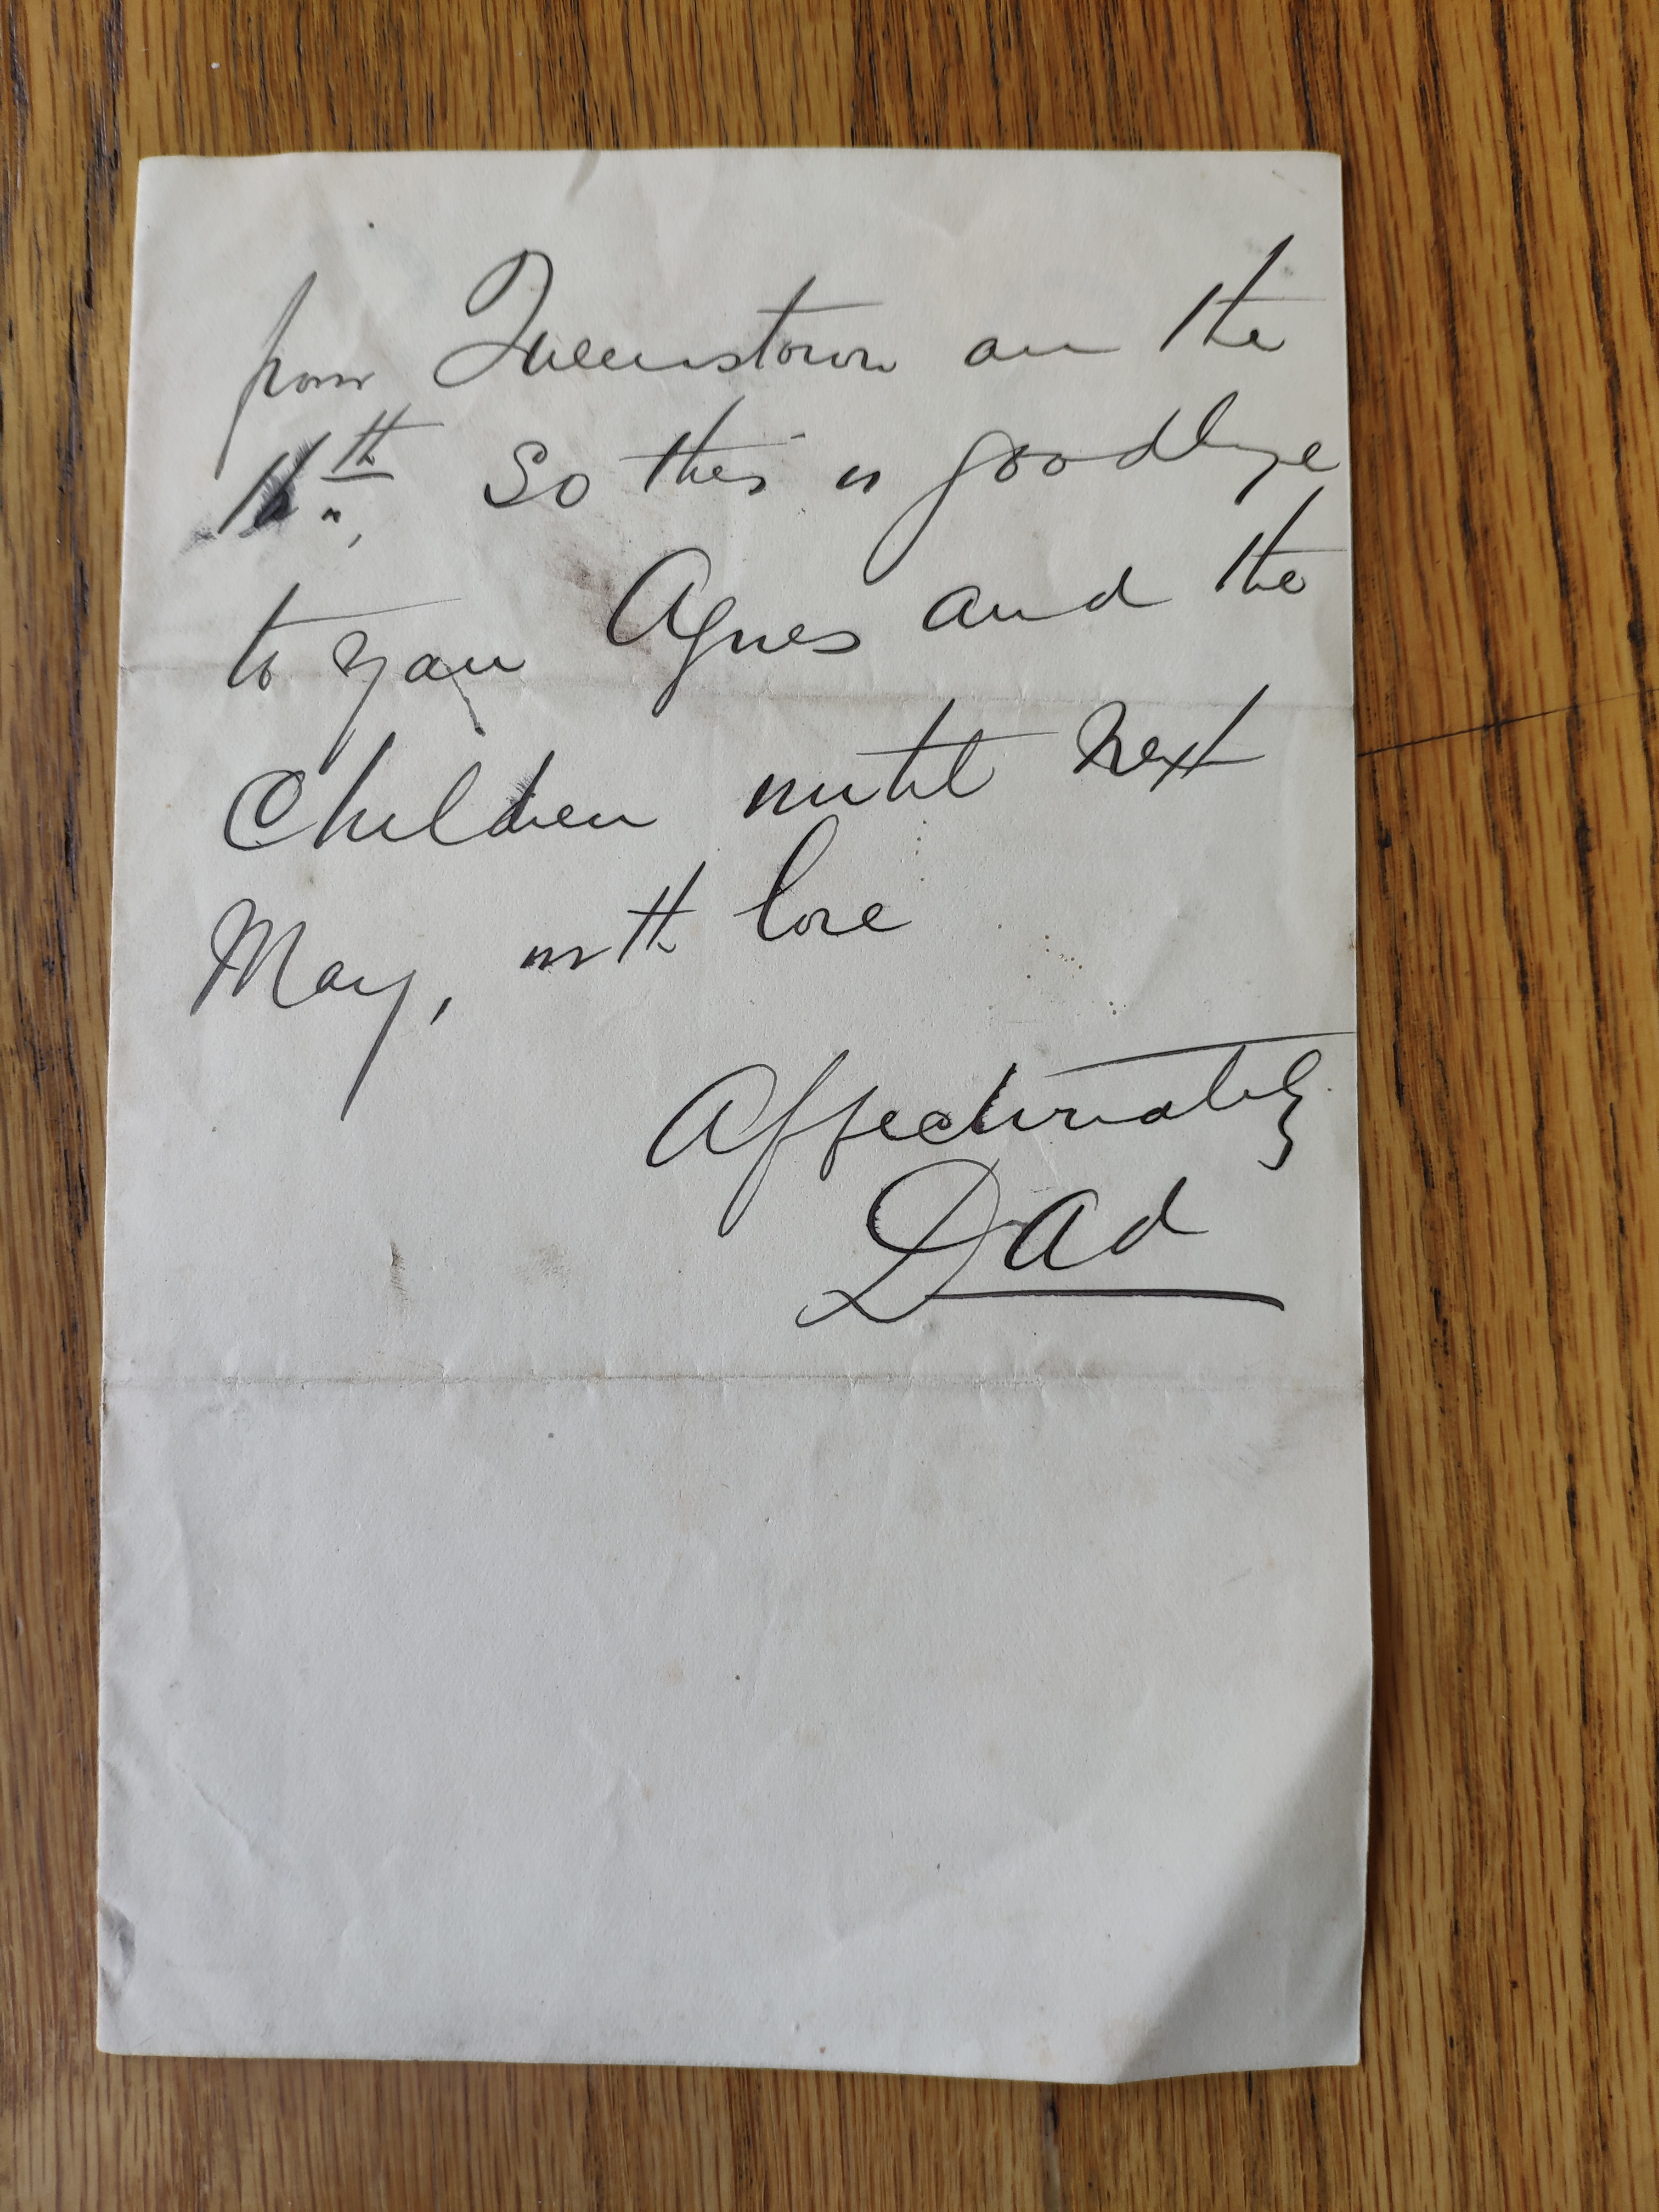 from Queenstown on the
16th. So this is goodbye
to you Agnes and the
Children until next
May, with love
Affectionately
Dad